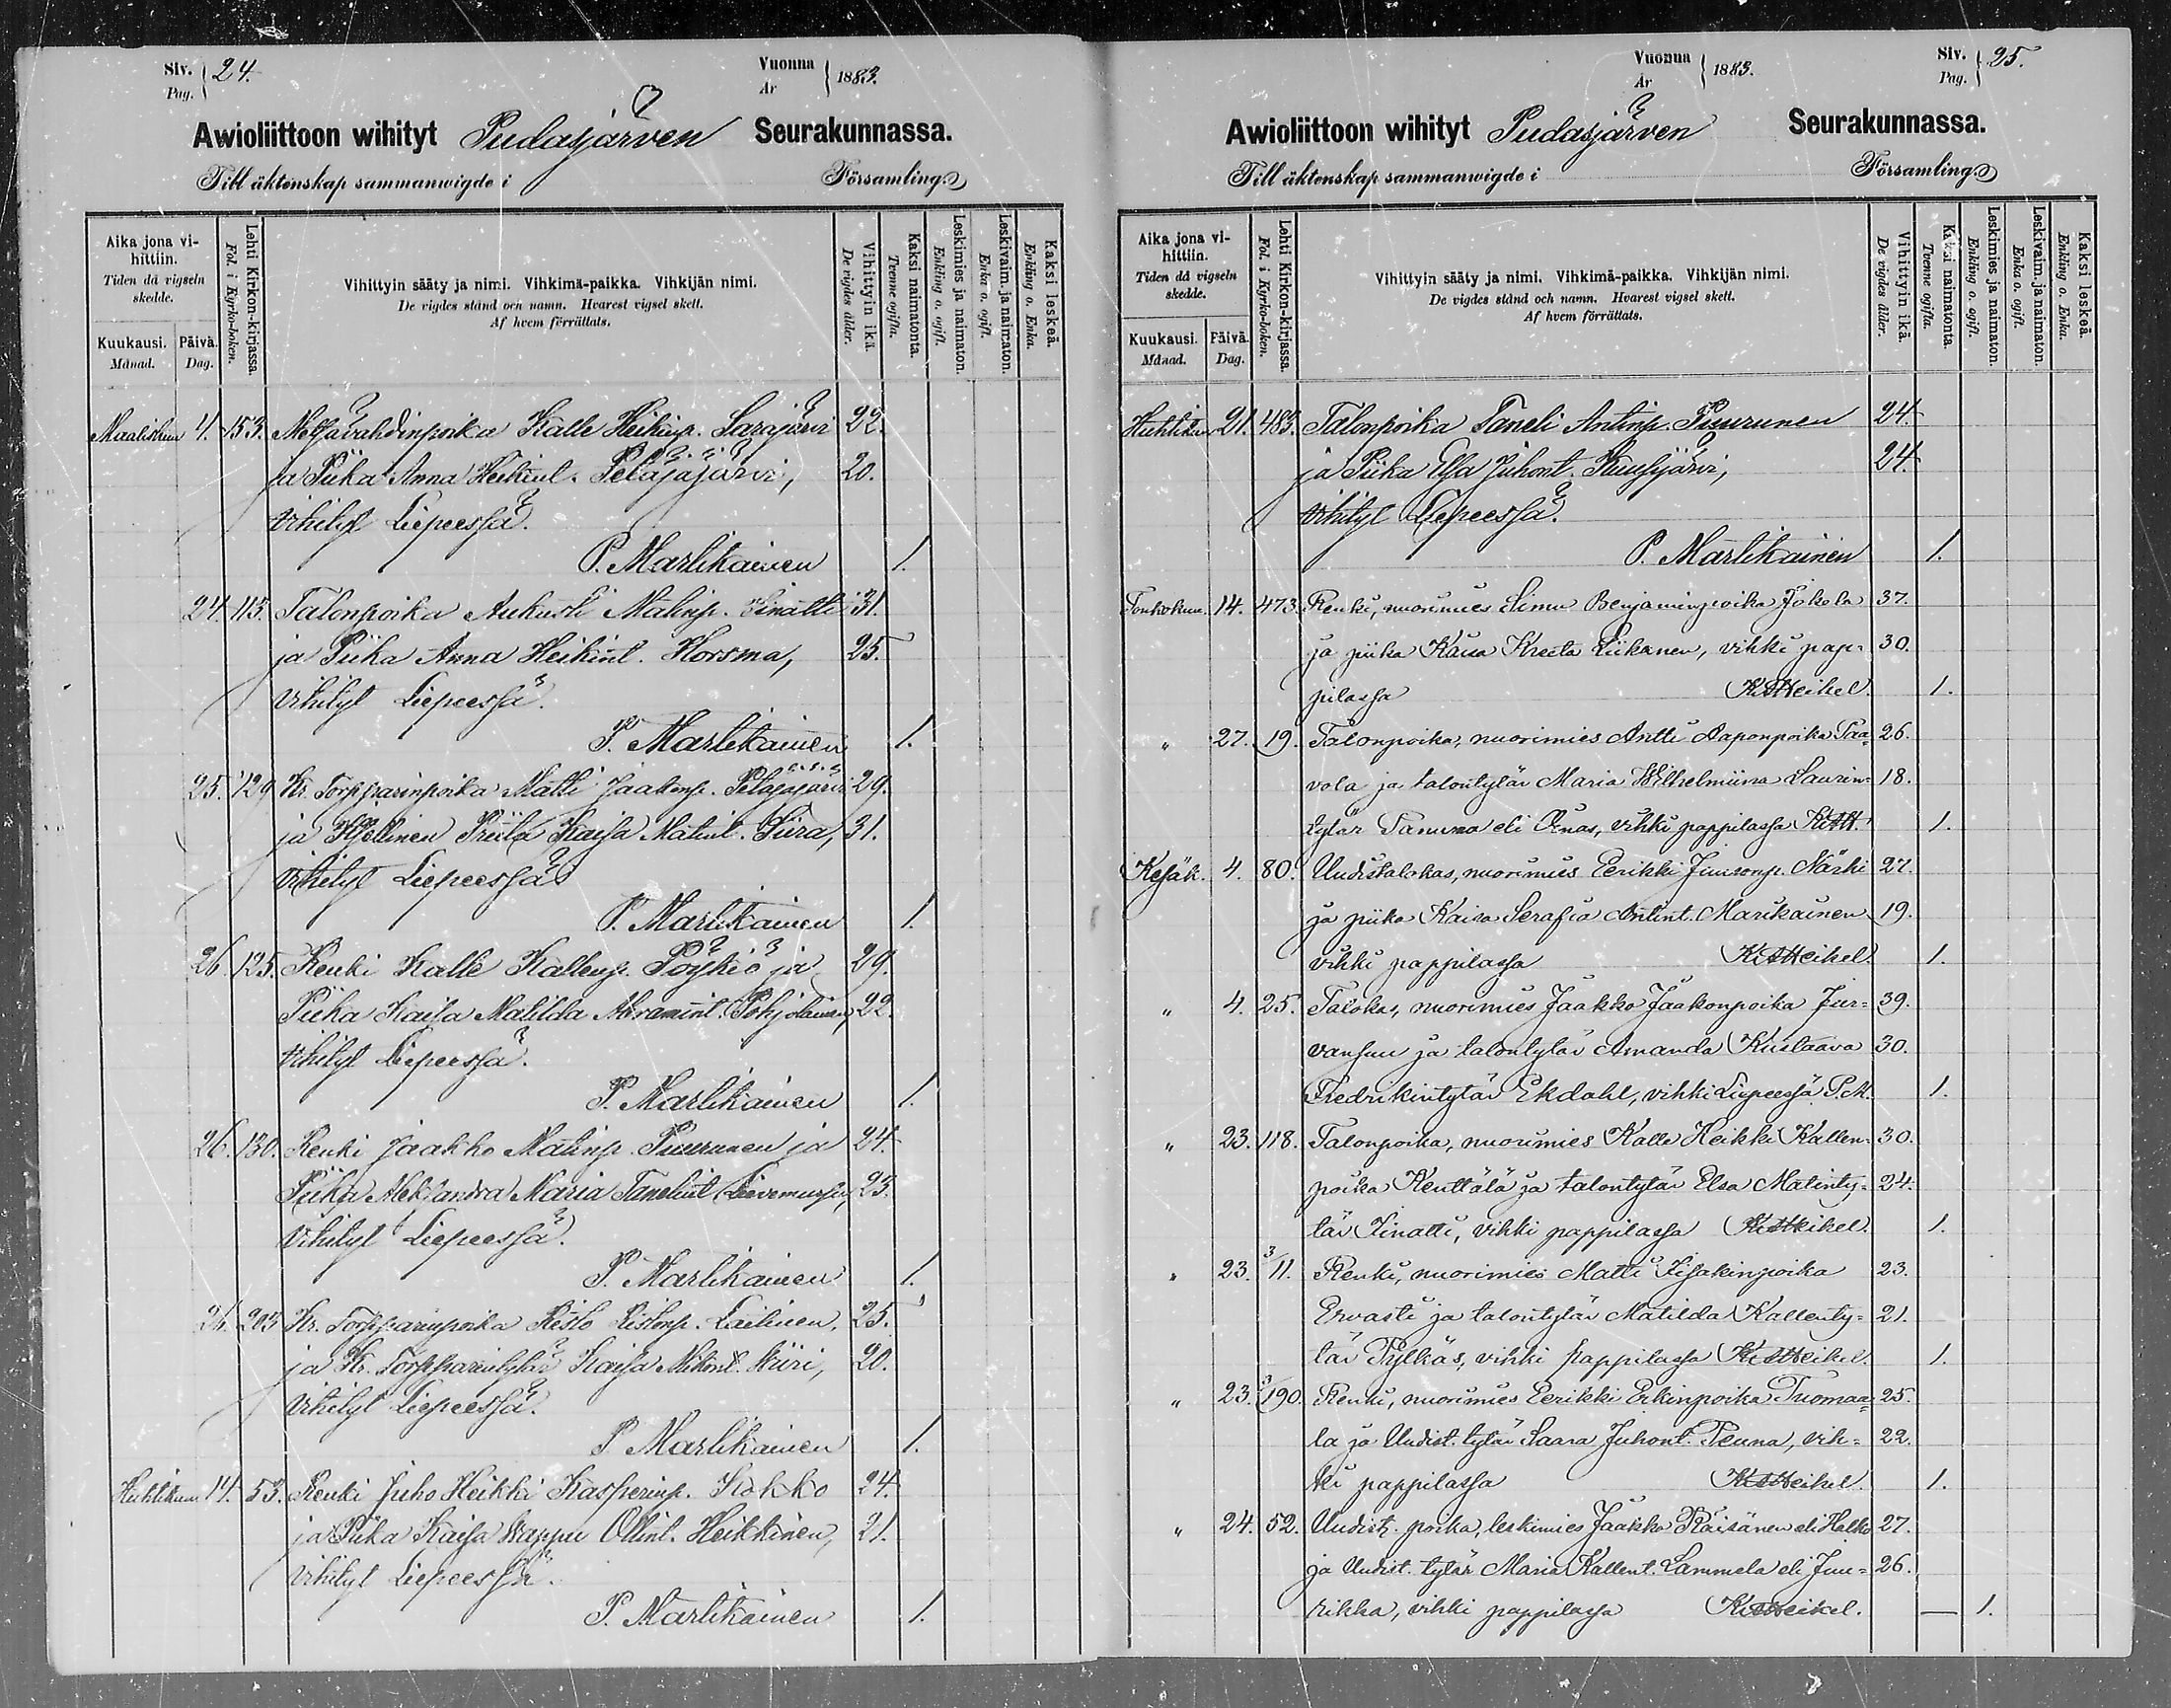 Siv. 24.
Pag.
Vuonna 1883.
År
Awioliittoon wihityt Pudasjärven Seurakunnassa.
Till äktenskap sammanwigde i Församling.
Aika jona vihittiin.
Tiden då vigseln skedde.
Kuukausi. Månad.
Päivä. Dag.
Lehti Kirkon-kirjassa.
Fol. i Kyrko-boken.
Vihittyin sääty ja nimi. Vihkimä-paikka. Vihkijän nimi.
De vigdes stånd och namn. Hvarest vigsel skett.
Af hvem förrättats.
Vihittyin ikä.
De vigdes ålder.
Kaksi naimatonta.
Tvenne ogifta.
Leskimies ja naimaton.
Enkling o. ogift.
Leskivaim. ja naimaton.
Enka o. ogift.
Kaksi leskeä.
Enkling o. Enka.
Maalisk. 4. 153. Metsävahdinpoika Kalle Heikinp. Sarajärvi 22.
ja Piika Anna Heikint. Petäjäjärvi, 20.
vihityt Liepeessä.
P. Martikainen 1.
24. 113. Talonpoika Aukusti Matinp. Iinatti 31.
ja Piika Anna Heikint. Horsma, 25.
vihityt Liepeessä.
P. Martikainen 1.
25. 129. Kr. Torpparinpoika Matti Jaakonp. Petäjäjärvi 29.
ja Priita Kaisa Matint. Tiira, 31.
vihityt Liepeessä
P. Martikainen 1.
26. 125. Renki Kalle Kallenp. Pöykiö ja 29.
Piika Kaisa Matilda Abramint. Pohjolainen, 22.
vihityt Liepeessä.
P. Martikainen 1.
26. 130. Renki Jaakko Matinp. Puurunen ja 24.
Piika Aleksandra Maria Tanelint. 23.
vihityt Liepeessä.
P. Martikainen 1.
26. 203 Kr. Torpparinpoika Risto Ristonp. Laitinen, 25.
ja Kr. Torpparintytär Kaisa Mikont. Niiri, 20.
vihityt Liepeessä.
P. Martikainen 1.
Huhtikuu 14. 53. Renki Juho Heikki Kasperinp. Kokko 24.
ja Piika Kaisa Wappu Ollint. Heikkinen, 21.
vihityt Liepeessä.
P. Martikainen 1.
Vuonna 1883.
År
Siv. 25.
Pag.
Awioliittoon wihityt Pudasjärven Seurakunnassa.
Till äktenskap sammanwigde i Församling.
Aika jona vihittiin.
Tiden då vigseln skedde.
Kuukausi. Månad.
Päivä. Dag.
Lehti Kirkon-kirjassa.
Fol. i Kyrko-boken.
Vihittyin sääty ja nimi. Vihkimä-paikka. Vihkijän nimi.
De vigdes stånd och namn. Hvarest vigsel skett.
Af hvem förrättats.
Vihittyin ikä.
De vigdes ålder.
Kaksi naimatonta.
Tvenne ogifta.
Leskimies ja naimaton.
Enkling o. ogift.
Leskivaim. ja naimaton.
Enka o. ogift.
Kaksi leskeä.
Enkling o. Enka.
Huhtikuu 21. 483. Talonpoika Taneli Antinp. Puurunen 24.
ja Piika Elsa Juhont. Kuusijärvi, 24.
vihityt Liepeessä.
P. Martikainen 1.
Toukokuu. 14. 473. Renki, nuorimies Simu Benjaminpoika Jokela 37.
ja piika Kaisa Kreeta Liikanen, vihki pap- 30.
pilassa K. A. Heikel. 1.
" 27. 19. Talonpoika, nuorimies Antti Aaponpoika Paa- 26.
vola ja talontytär Maria Wilhelmiina Laurin- 18.
tytär Tanuma eli Ainas, vihki pappilassa K.A.H. 1.
Kesäk. 4. 80. Uudistalokas, nuorimies Eerikki Juusonp. Närhi 27.
ja piika Kaisa Serafia Antint. Marikainen 19.
vihki pappilassa K. A. Heikel. 1.
" 4. 25. Talokas, nuorimies Jaakko Jaakonpoika Jur- 39.
vansuu ja talontytär Amanda Kustaava 30.
Fredrikintytär Ekdahl, vihki Liepeessä P.M. 1.
" 23. 118. Talonpoika, nuorimies Kalle Heikki Kallen- 30.
poika Kenttälä ja talontytär Elsa Matinty- 24.
tär Iinatti, vihki pappilassa K. A. Heikel. 1.
" 23. 3/11. Renki, nuorimies Matti Iisakinpoika 23.
Ervasti ja talontytär Matilda Kallenty- 21.
tär Pylkäs, vihki pappilassa K. A. Heikel. 1.
" 23. 3/190. Renki, nuorimies Eerikki Erkinpoika Tuomaa- 25.
la ja Uudist. tytär Saara Juhont. Teuna, vih- 22.
ki pappilassa K. A. Heikel. 1.
" 24. 52. Uudist. poika, leskimies Jaakko Räisänen eli Halko 27.
ja Uudist. tytär Maria Kallent. Lammela eli Juu- 26.
rikka, vihki pappilassa K. A. Heikel. — 1.